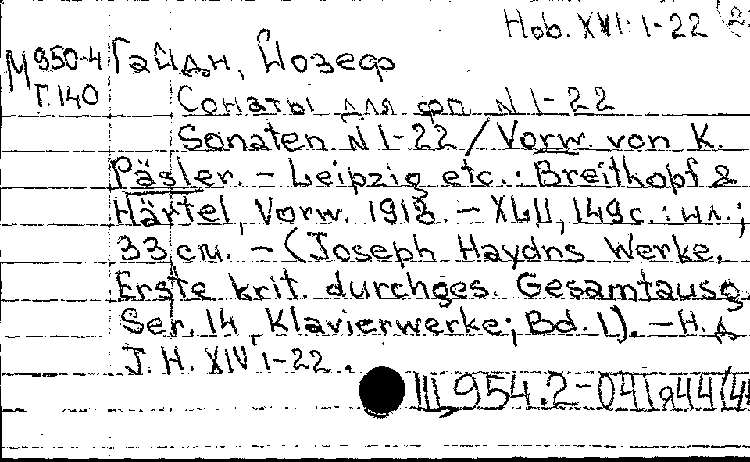 Hob. XVI: 1-22
М950-4 Гайдн, Йозеф
Г.140
Сонаты для фп. N 1-22
Sonaten N 1-22 / Vorw. von K.
Päsler. – Leipzig etc.: Breitkopf &
Härtel, Vorw. 1918. – XLII, 149 с.: ил.;
33 см. – (Joseph Haydns Werke.
Erste krit. durchges. Gesamtausg.
Ser. 14, Klavierwerke; Bd. 1). – Н. д.
J. H. XIV 1-22.
III 954.2-04